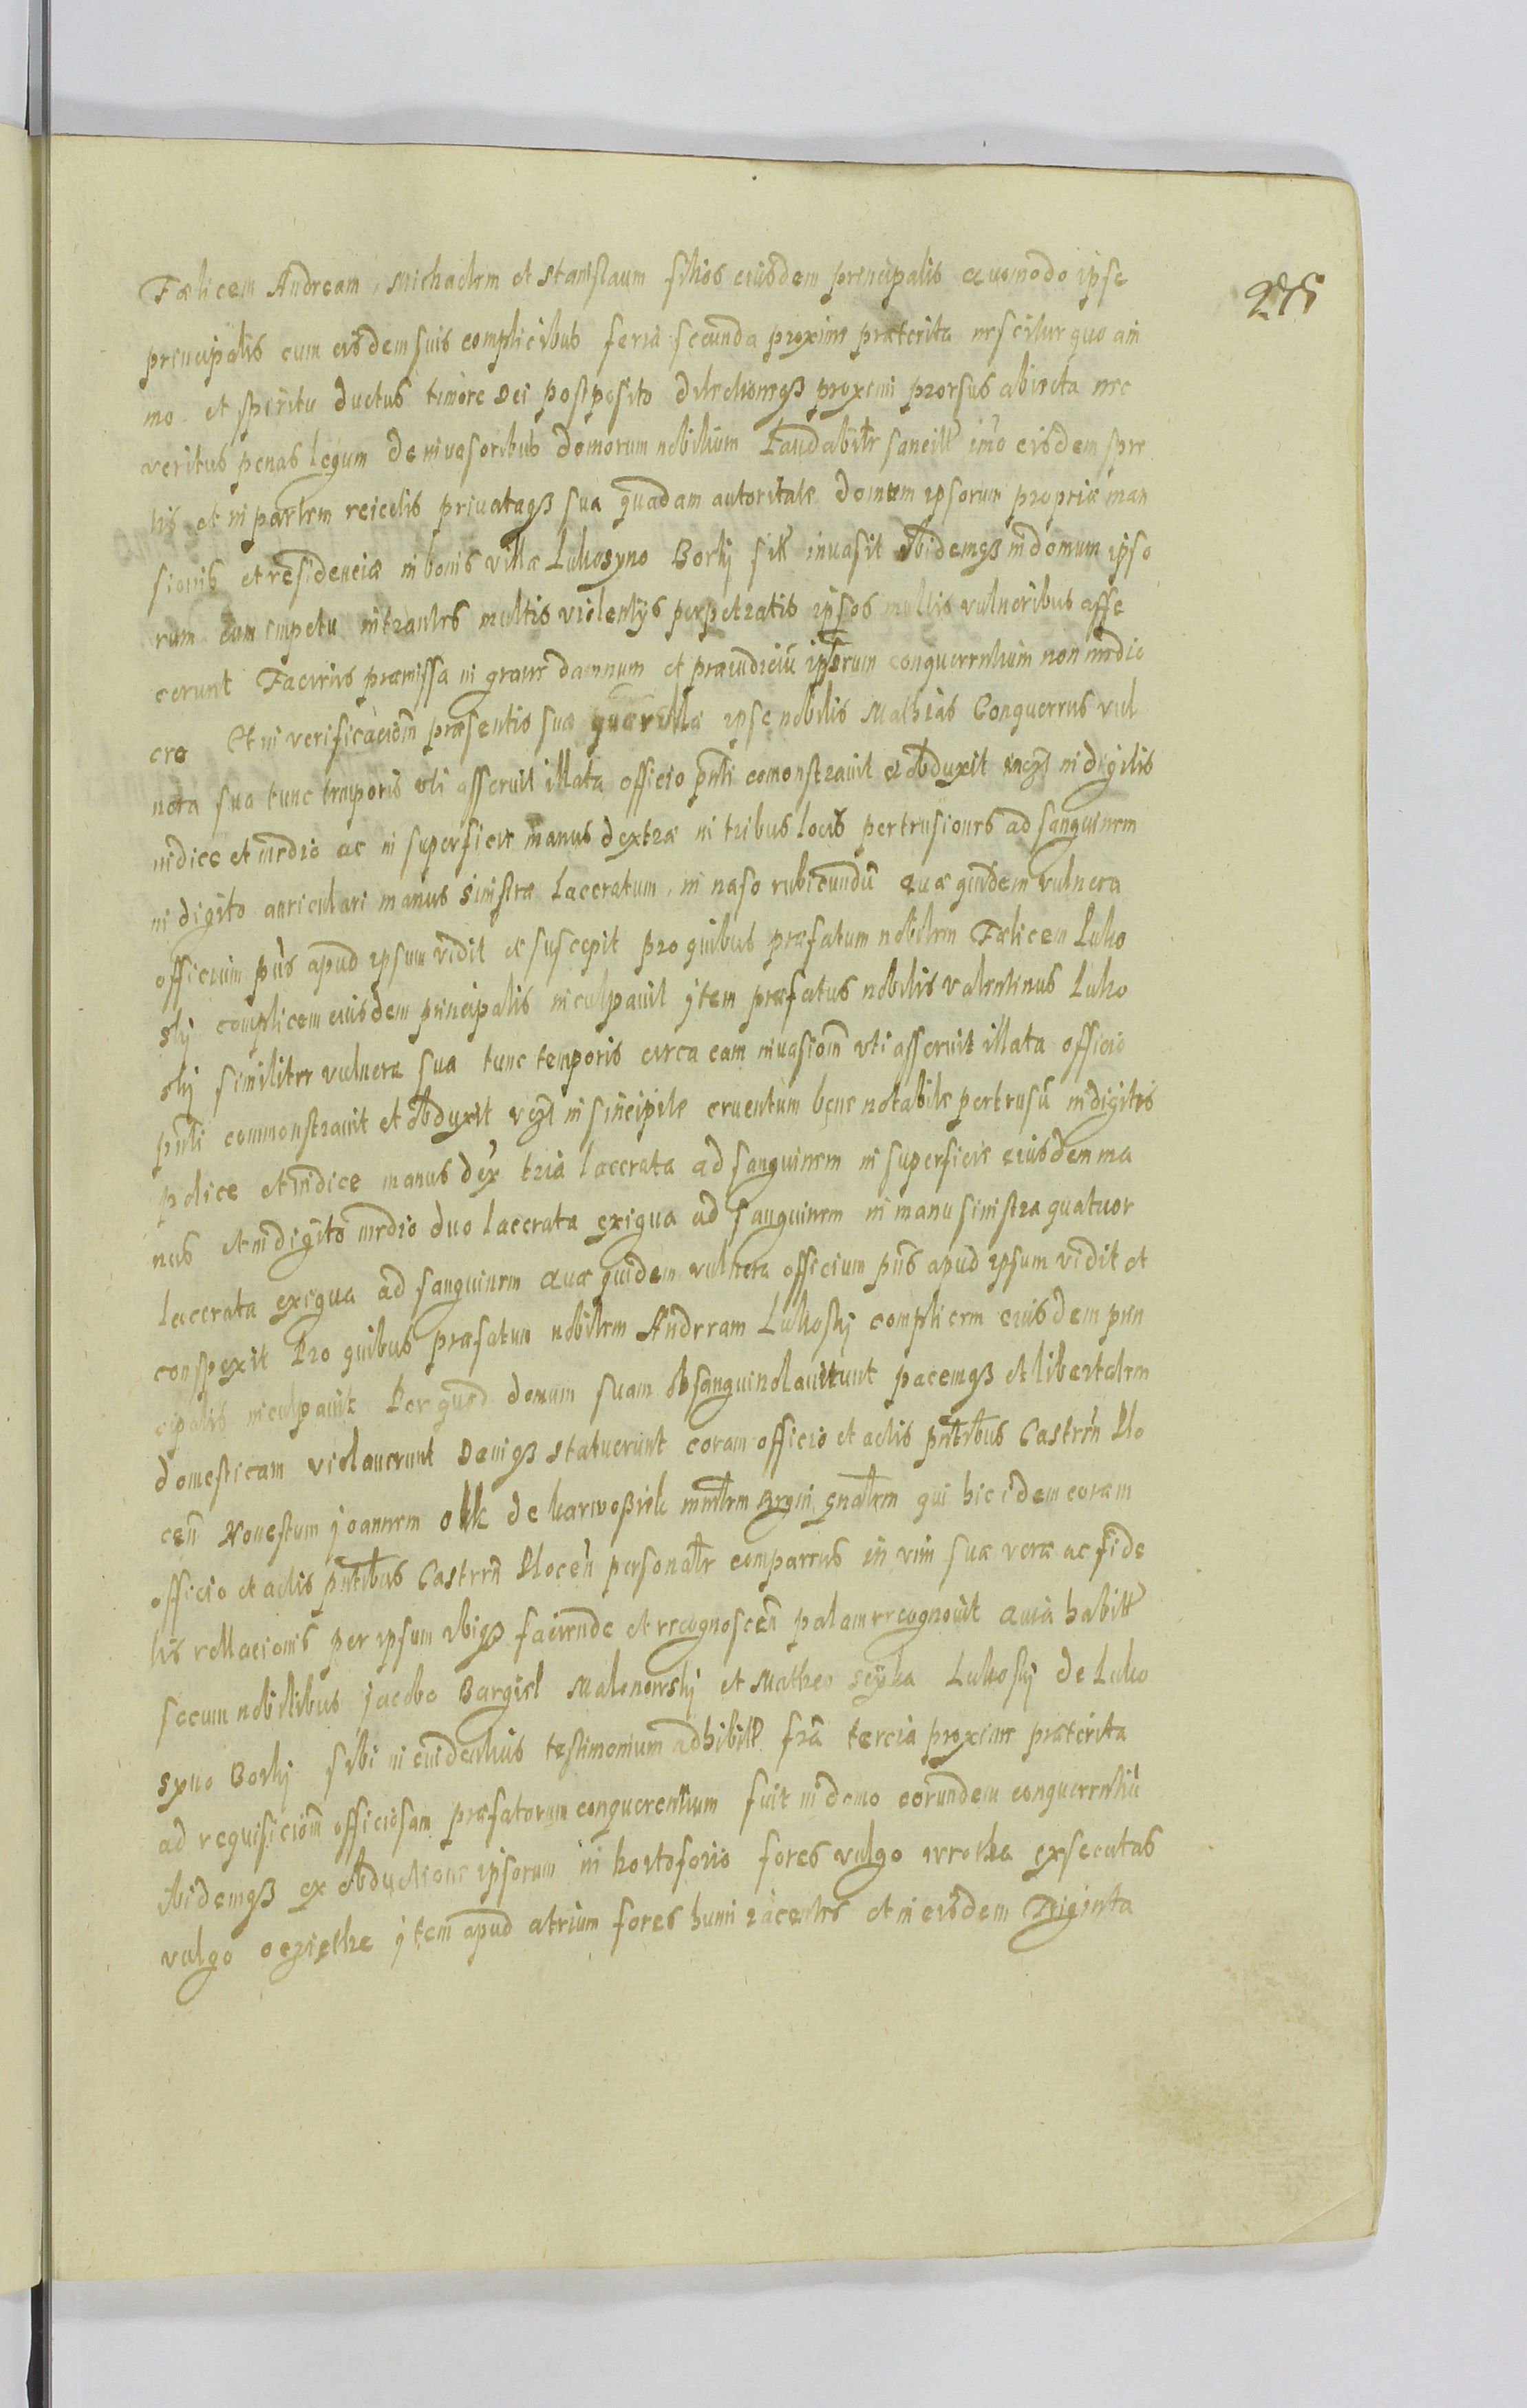 275
Fælicem Andream, Michaelem et Stanislaum filios eiusdem principalis Quomodo ipse
principalis cum eisdem suis complicibus feria secunda proxime præterita nescitur quo ani
mo et spiritu ductus timore Dei postposito dilectioneqз proximi prorsus abiecta nec
veritus penas legum de invasoribus domorum nobilium laudabilr sancitt imo eisdem spre
tis et in partem reiectis privataqз sua quadam autoritate domum ipsorum propriæ man
sionis et residenciæ in bonis villæ Lukosyno Borkj sitt invasit Ibidemqз in domum ipso
rum cum impetu intrantes multis violentijs perpetratis ipsos multis vulneribus affe
cerunt Faciens præmissa in grave damnum et præiudiciū ipsorum conquerentium non medio
cre Et in verificaciōm præsentis suæ quærellæ ipse nobilis Mathias Conquerens vul
nera sua tunc temporis uti asseruit illata officio pnti comonstravit et obduxit videlzt in digitis
indice et medio ac in superficie manus dextræ in tribus locis pertrusiones ad sanguinem
in digito auriculari manus sinistræ laceratum, in naso rubicundū Quæ quidem vulnera
officium pns apud ipsum vidit et suscepit pro quibus præfatum nobilem Fælicem Luko
skj complicem eiusdem principalis inculpavit jtem præfatus nobilis Valentinus Luko
skj similiter vulnera sua tunc temporis circa eam invasiōm uti asseruit illata officio
pnti commonstravit et obduxit vzt in sincipite cruentum bene notabile pertrusū in digitis
police et indice manus dex tria lacerata ad sanguinem in superficie eiusdem ma
nus et in digito medio duo lacerata exigua ad sanguinem in manu sinistra quatuor
lacerata exigua ad sanguinem Quæ quidem vulnera officium pns apud ipsum vidit et
conspexit Pro quibus præfatum nobilem Andream Lukoskj complicem eiusdem prin
cipalis inculpavit Per quod domum suam obsanguinolaverunt pacemqз et libertatem
domesticam violaverunt Deniqз statuerunt coram officio et actis pntibus Castren Plo
cen Honestum joannem olik de karwosieki mnrlem Regni gnalem qui hic idem coram
officio et actis pntibus Castren Plocen personalr comparens in vim suæ veræ ac fide
lis rellacionis per ipsum ubiqз faciende et recognoscen palam recognovit Quia habitt
secum nobilibus jacobo Bargiel Malonowskj et Matheo seyka Lukoskj de Luko
syno Borkj sibi in evidentius testimonium adhibitt fra tercia proxime præterita
ad requisiciōm officiosam præfatorum conquerentium fuit in domo eorundem conquerentiū
Ibidemqз ex obductione ipsorum in hortoforio fores vulgo wrotka exsecatas
vulgo oczietke jtem apud atrium fores humi iacentes et in eisdem Triginta